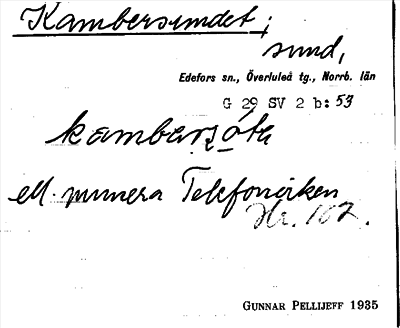 Kambersundet ;
sund,
Edefors sn., Överluleå tg., Norrb. län
G 29 SV 2 b: 53
ell numera Telefonviken
Nr. 162.
GUNNAR PELLIJEFF 1935